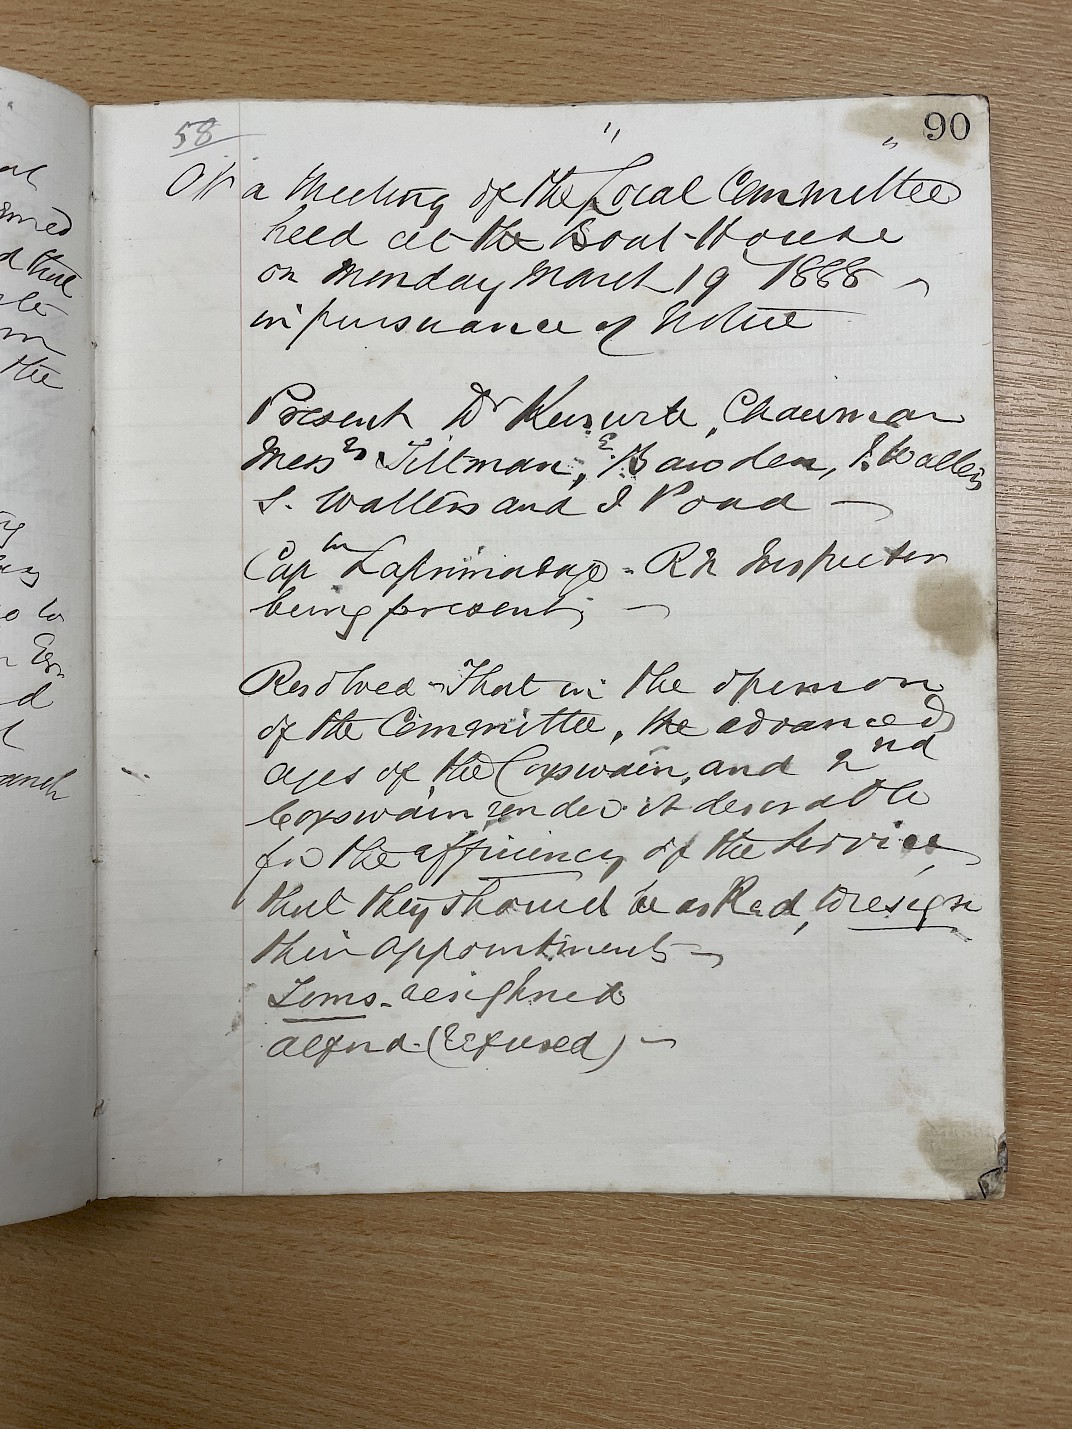 58
90
At a Meeting of the Local Committee
held at the Boat-House
on Monday March 19 1888 —
in pursuance of Notice
Present Dr Chairman
Messrs Tillman, E. Bawden, Walters
S. Walters and J Poad —
Capn Laprimaudaye - RN Inspector
being present, —
Resolved - That in the opinion
of the Committee, the advanced
ages of the Coxswain, and 2nd
Coxswain render it desirable
for the efficiency of the Service,
that they should be asked, to resign
their appointments —
Toms - resighned
(refused) —
the
to
Esq.
d